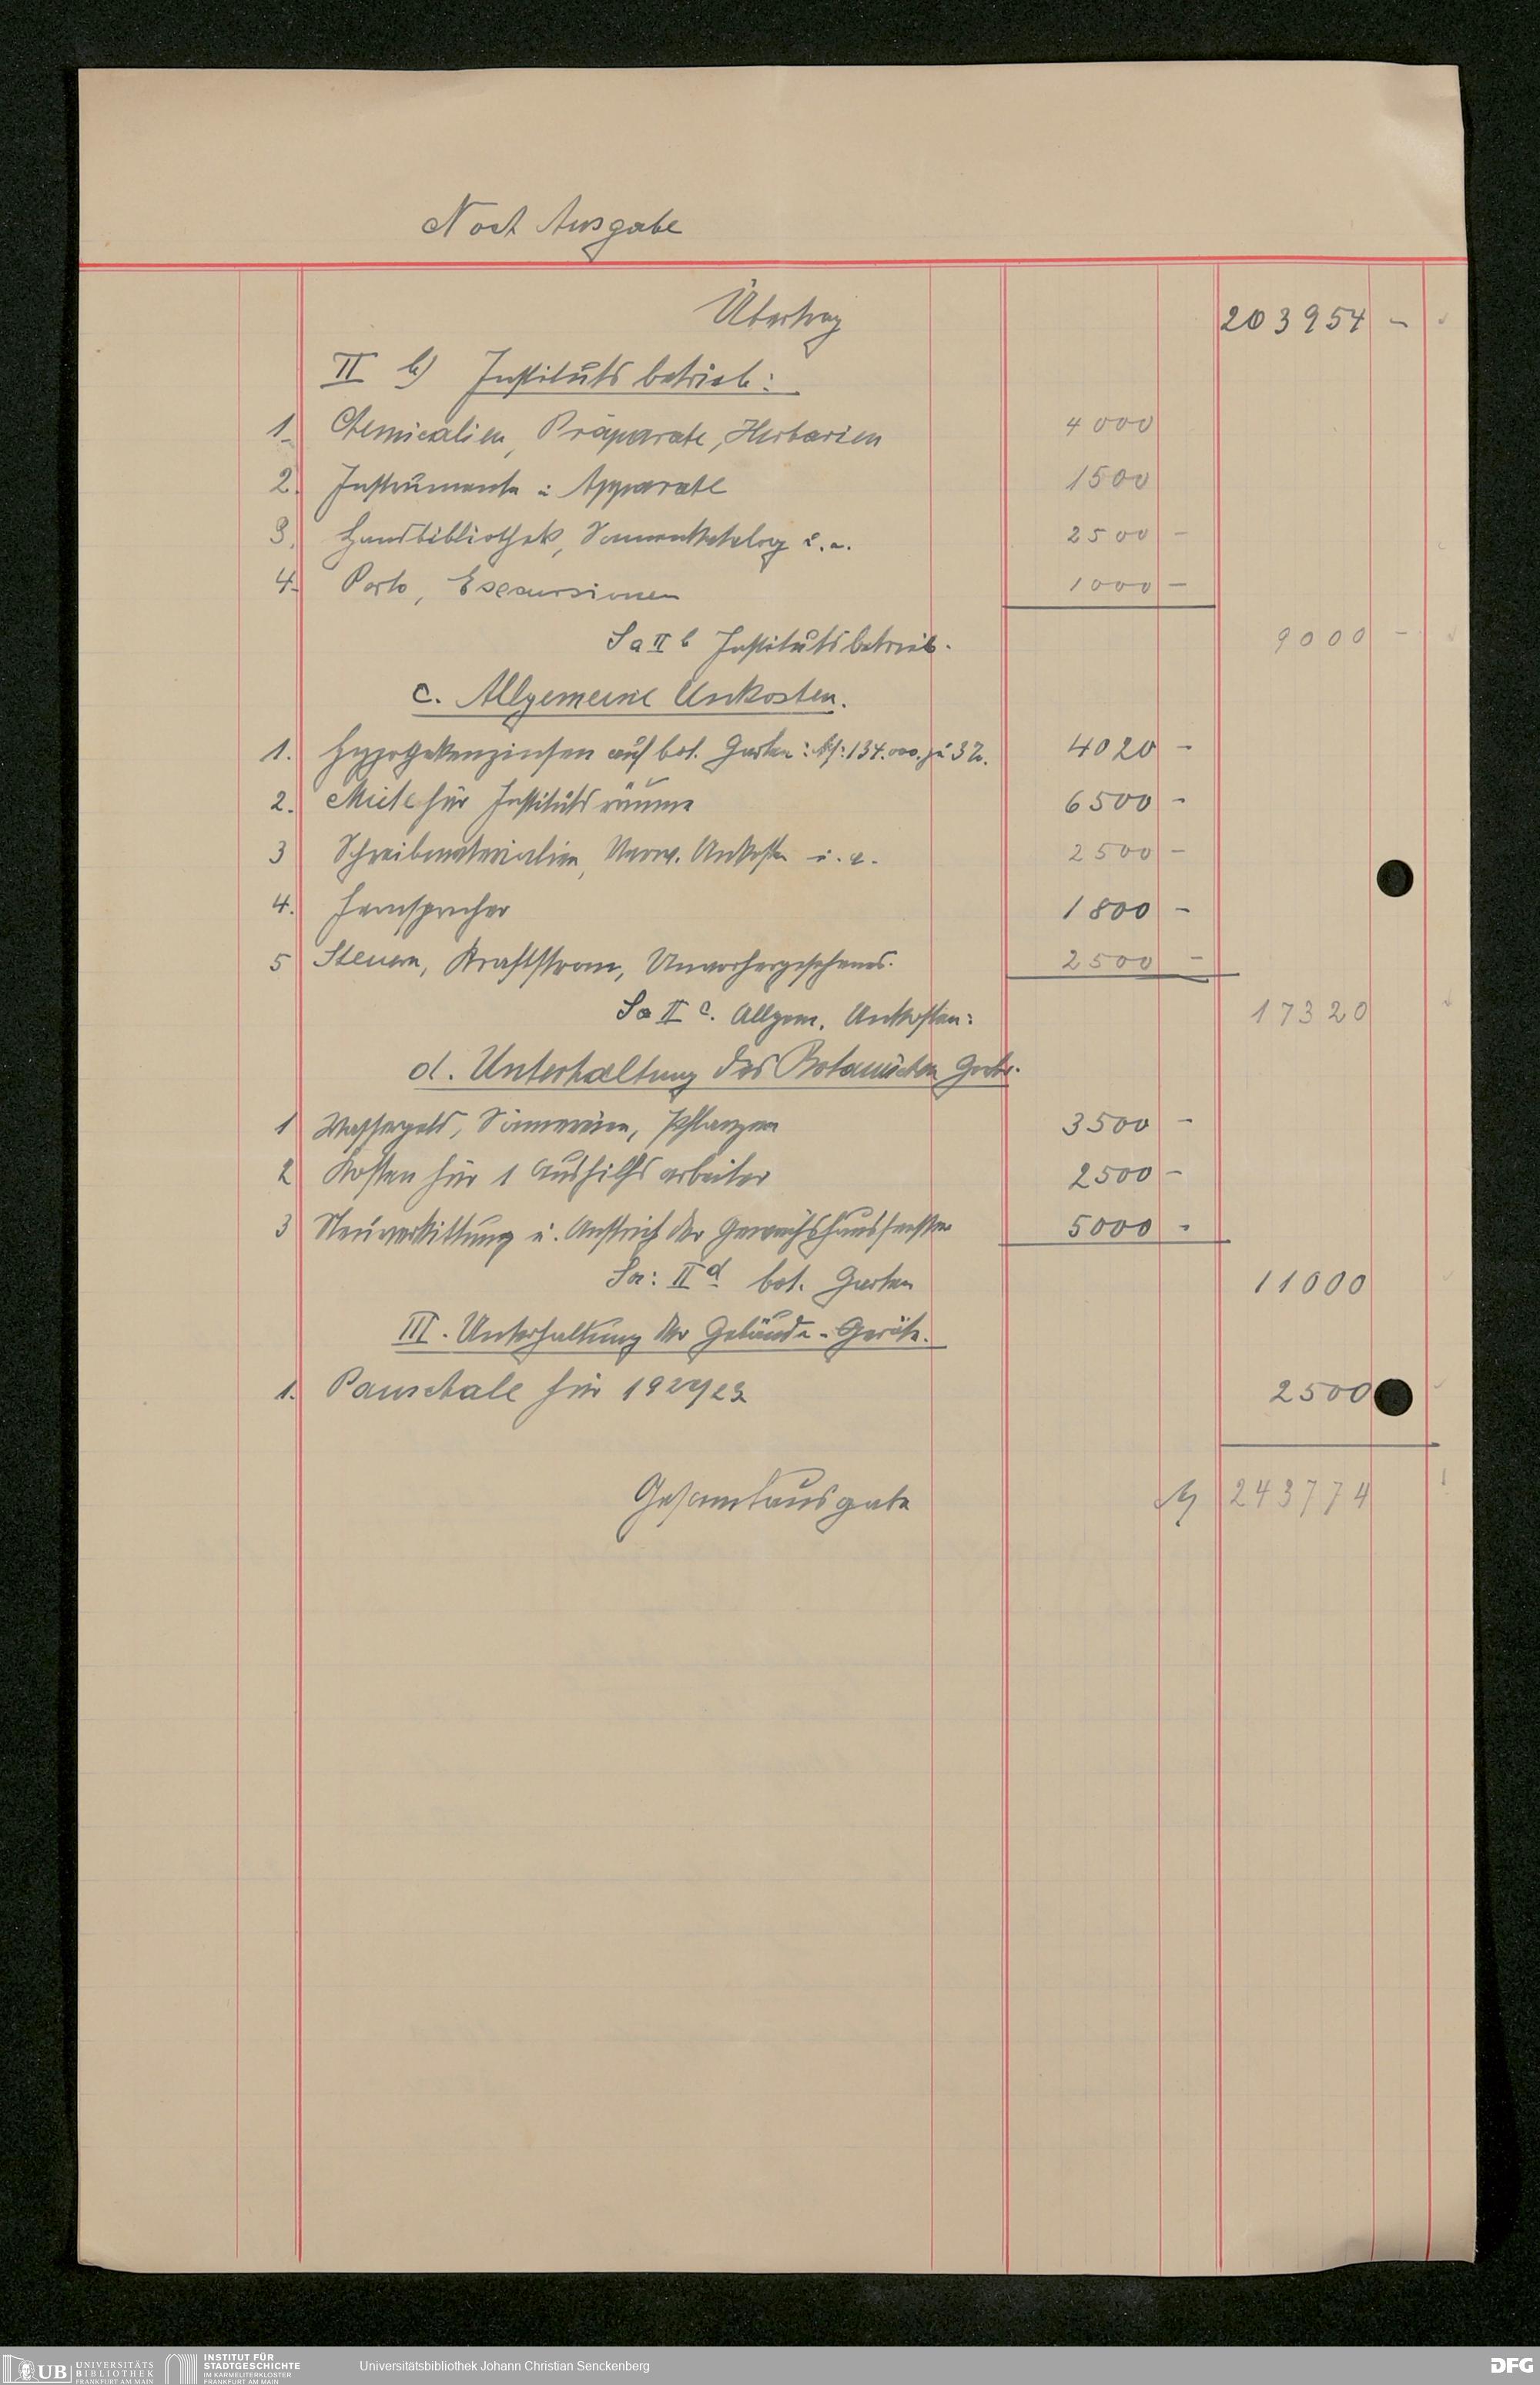 Noch Ausgabe
Übertrag 203954 -
II b) Institutsbetrieb:
1. Chemicalien, Präparate, Herbarien 4000
2. Instrumente u. Apparate 1500
3. Handbibliothek, Samenkatalog u. a. 2500 -
4. Porto, Excursionen 1000 -
Sa II b Institutsbetrieb. 9000 -
c. Allgemeine Unkosten.
1. Hypothekenzinsen auf bot. Garten: M: 134.000. zu 3%. 4020 -
2. Miete für Institutsräume 6500 -
3 Schreibmaterialien, Verw. Unkosten u. a. 2500 -
4. Fernsprecher 1800 -
5 Steuern, Kraftstrom, Unvorhergesehenes. 2500 -
Sa II c. Allgem. Unkosten: 17320
d. Unterhaltung des Botanischen Gartens.
1 Wassergeld, Sämereien, Pflanzen 3500 -
2 Kosten für 1 Aushilfsarbeiter 2500 -
3 Neuverkittung u. Anstrich der Gewächshausfenster 5000 -
Sa: II d bot. Garten 11000
III. Unterhaltung der Gebäude - Geräte.
1. Pauschale für 1922/23 2500
Gesamtausgabe M 243774
UB UNIVERSITÄTS BIBLIOTHEK FRANKFURT AM MAIN
INSTITUT FÜR STADTGESCHICHTE IM KARMELITERKLOSTER FRANKFURT AM MAIN
Universitätsbibliothek Johann Christian Senckenberg
DFG